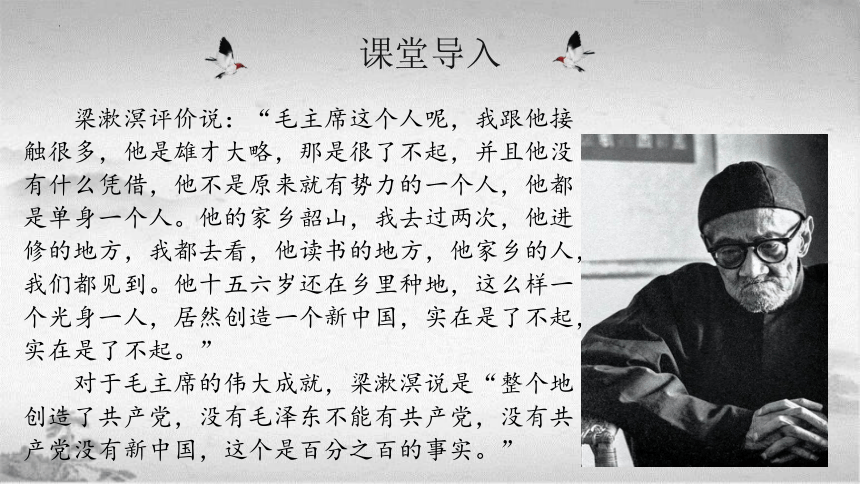 课堂导入
梁漱溟评价说：“毛主席这个人呢，我跟他接
触很多，他是雄才大略，那是很了不起，并且他没
有什么凭借，他不是原来就有势力的一个人，他都
是单身一个人。他的家乡韶山，我去过两次，他进
修的地方，我都去看，他读书的地方，他家乡的人，
我们都见到。他十五六岁还在乡里种地，这么样一
个光身一人，居然创造一个新中国，实在是了不起，
实在是了不起。”
对于毛主席的伟大成就，梁漱溟说是“整个地
创造了共产党，没有毛泽东不能有共产党，没有共
产党没有新中国，这个是百分之百的事实。”